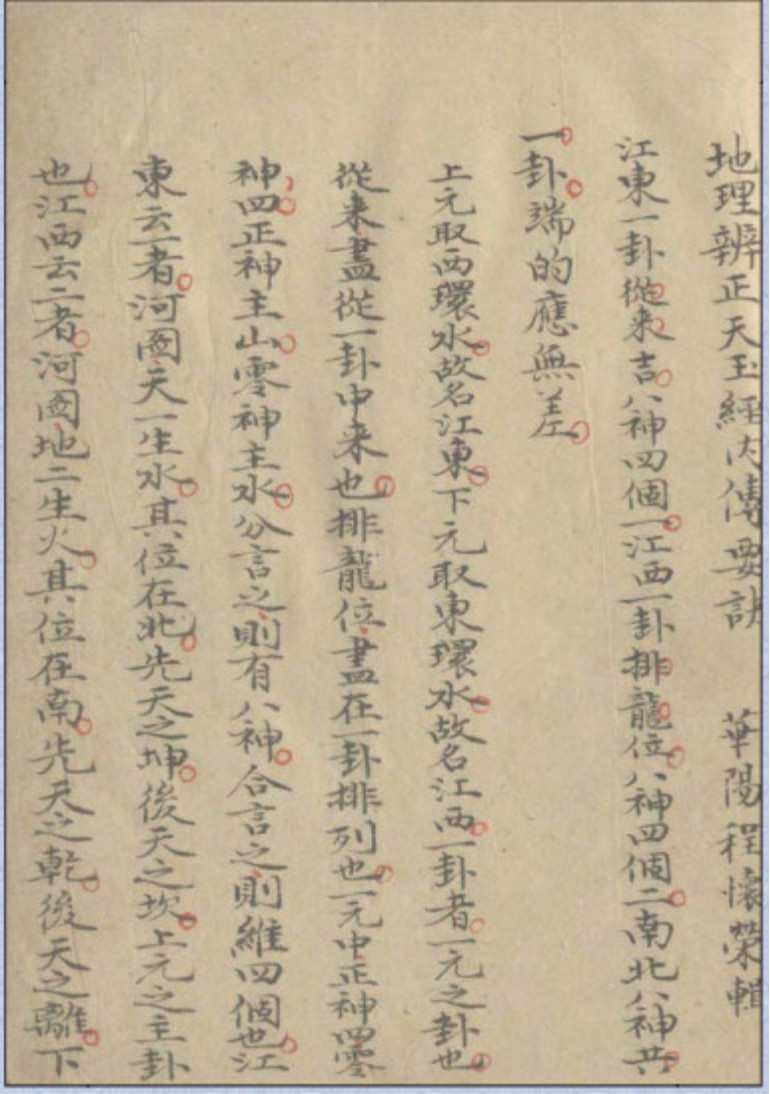 地理辨正天玉經内傳要訣 華陽程懷榮輯
江東一卦從來吉八神四個一江西一卦排龍位八神四個二南北八神共
一卦端的應無差
上元取西環水故名江東下元取東環水故名江西一卦者一元之卦也
從来盡從一卦中来也排龍位盡在一卦排列也一元中正神四零
神四正神主山零神主水分言之則有八神合言之則維四個也江
東云一者河圖天一生水其位在北先天之坤後天之坎上元之主卦
也江西云二者河圖地二生火其位在南先天之乾後天之離下